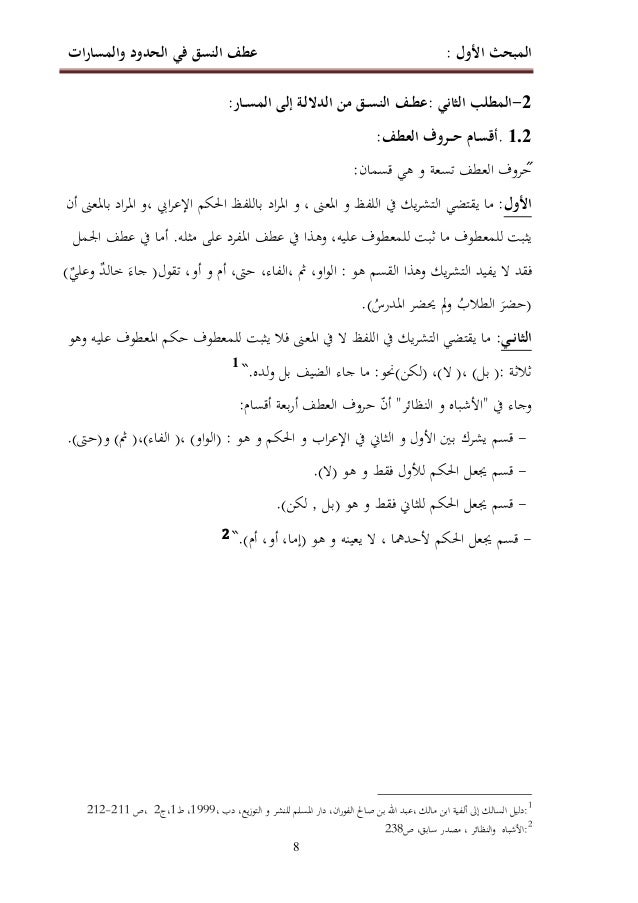 المبحث الأول : عطف النسق في الحدود والمسارات
2-المطلب الثاني :عطـف النسـق من الدلالـة إلى المسـار:
1.2 .أقسام حـروف العطف:
"حروف العطف تسعة و هي قسمان:
الأول: ما يقتضي التشريك في اللفظ و المعنى ، و المراد باللفظ الحكم الإعرابي ،و المراد بالمعنى أن
يثبت للمعطوف ما ثبت للمعطوف عليه، وهذا في عطف المفرد على مثله. أما في عطف الجمل
فقد لا يفيد التشريك وهذا القسم هو : الواو، ثم ،الفاء، حتى، أم و أو، تقول( جاءَ خالدٌ وعليٌ)
(حضرَ الطلابُ ولم يحضر المدرسُ).
الثانـي: ما يقتضي التشريك في اللفظ لا في المعنى فلا يثبت للمعطوف حكم المعطوف عليه وهو
ثلاثة :( بل) ،( لا)، (لكن)نحو: ما جاء الضيف بل ولده."1
وجاء في "الأشباه و النظائر" أنّ حروف العطف أربعة أقسام:
- قسم يشرك بين الأول و الثاني في الإعراب و الحكم و هو : (الواو) ،( الفاء)،( ثم) و(حتى).
- قسم يجعل الحكم للأول فقط و هو (لا).
- قسم يجعل الحكم للثاني فقط و هو (بل , لكن).
- قسم يجعل الحكم لأحدهما ، لا يعينه و هو (إما، أو، أم)."2
1:دليل السالك إلى ألفية ابن مالك ،عبد الله بن صالح الفوزان، دار المسلم للنشر و التوزيع، دب ،1999، ط1،ج2 ،ص 211-212
2:الأشباه والنظائر ، مصدر سابق، ص238
8